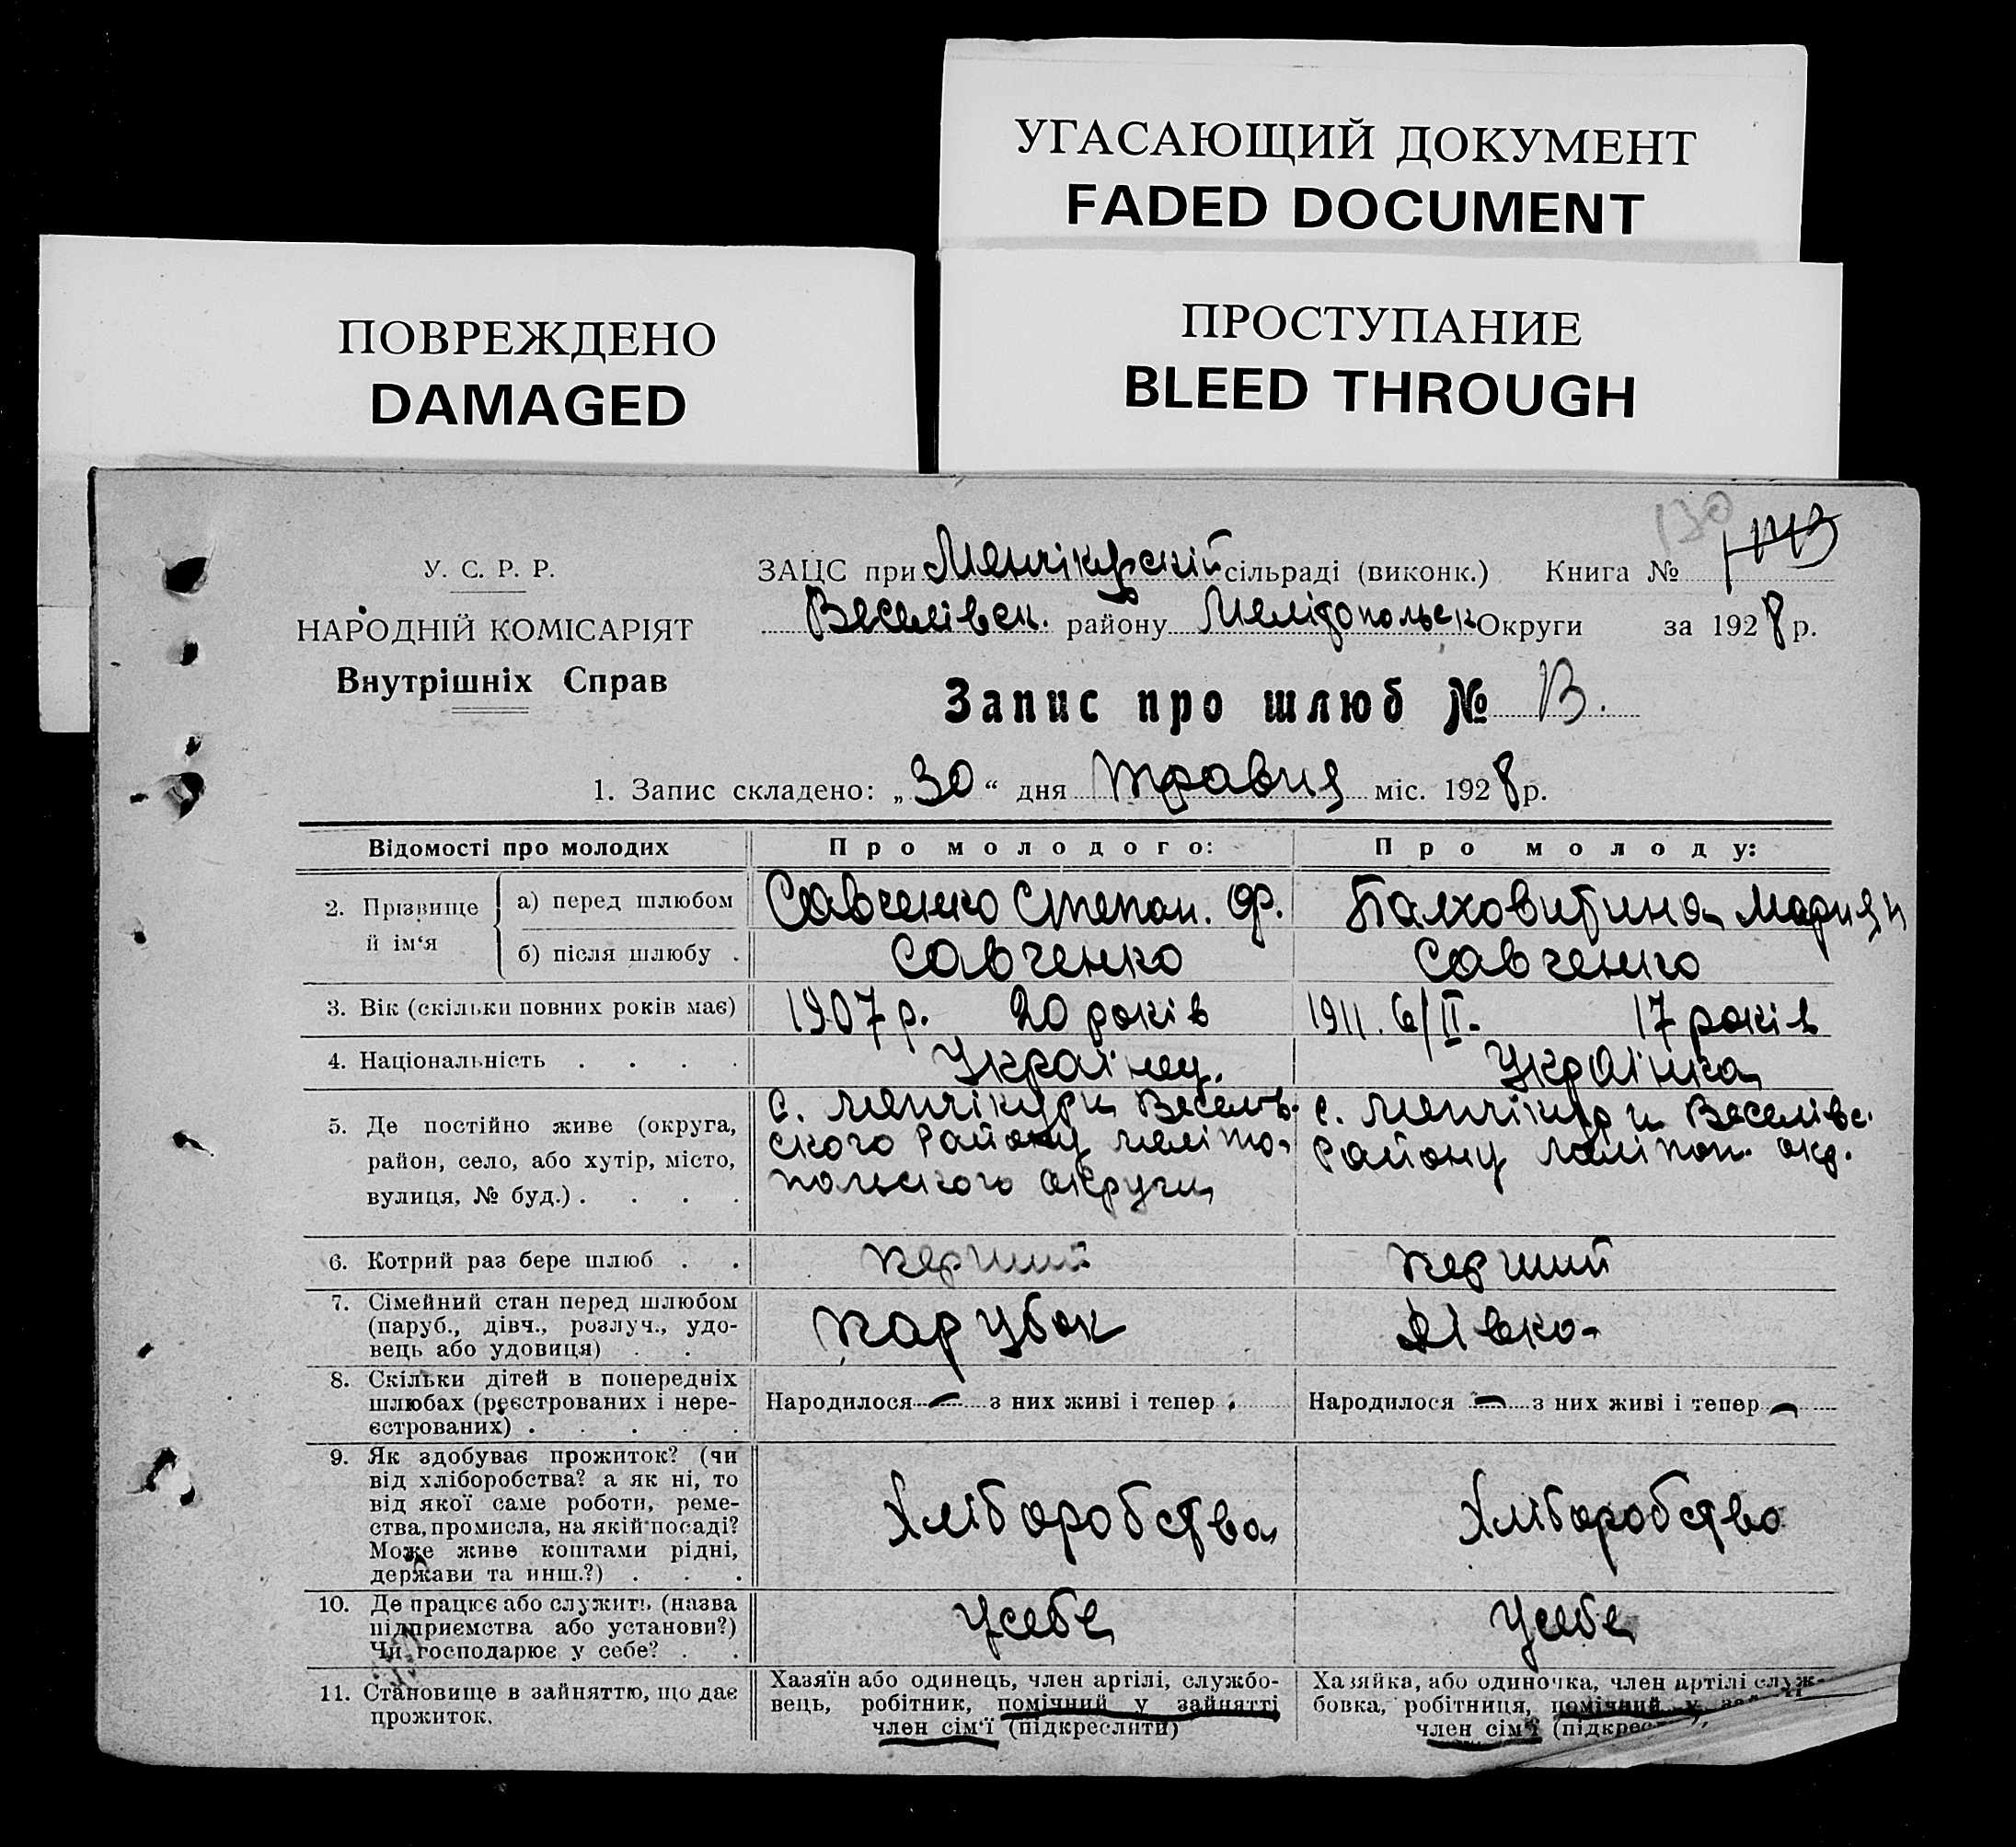 УГАСАЮЩИЙ ДОКУМЕНТ
FADED DOCUMENT
ПОВРЕЖДЕНО
DAMAGED
ПРОСТУПАНИЕ
BLEED THROUGH
130
У. С. Р. Р.
НАРОДНІЙ КОМІСАРІЯТ
Внутрішніх Справ
ЗАЦС при Менчікурській сільраді (виконк.) Книга №
Веселівск. району Мелітопольск Округи за 1928 р.
Запис про шлюб № 13.
1. Запис складено: „30“ дня травня міс. 1928 р.
Відомості про молодих
Про молодого:
Про молоду:
2. Прізвище й ім‘я
а) перед шлюбом
Савченко Степан. Ф.
Палховитина Мария
б) після шлюбу .
Савченко
Савченко
3. Вік (скільки повних років має)
1907 р. 20 років
1911. 6/II. 17 років
4. Національність . . . .
Українец.
Українка
5. Де постійно живе (округа,
район, село, або хутір, місто,
вулиця, № буд.) . . . .
с. Менчікури Веселів-
ского Району меліто-
польского округи
с. Менчікури Веселівс.
Району меліпоп. окр.
6. Котрий раз бере шлюб . .
перший
перший
7. Сімейний стан перед шлюбом
(паруб., дівч., розлуч., удо-
вець або удовиця) . .
парубок
Дівка
8. Скільки дітей в попередніх
шлюбах (реєстрованих і нере-
єстрованих) . . . . .
Народилося — з них живі і тепер
Народилося — з них живі і тепер —
9. Як здобуває прожиток? (чи
від хліборобства? а як ні, то
від якої саме роботи, реме-
ства, промисла, на якій посаді?
Може живе коштами рідні,
держави та инш.?) . . .
Хліборобства
Хліборобство
10. Де працює або служить (назва
підприємства або установи?)
Чи господарює у себе? . .
Усебе
Усебе
11. Становище в зайняттю, що дає
прожиток.
Хазяїн або одинець, член артілі, службо-
вець, робітник, помічний у зайнятті
член сім‘ї (підкреслити)
Хазяйка, або одиночка, член артілі служ-
бовка, робітниця, помічний у
член сім‘ї